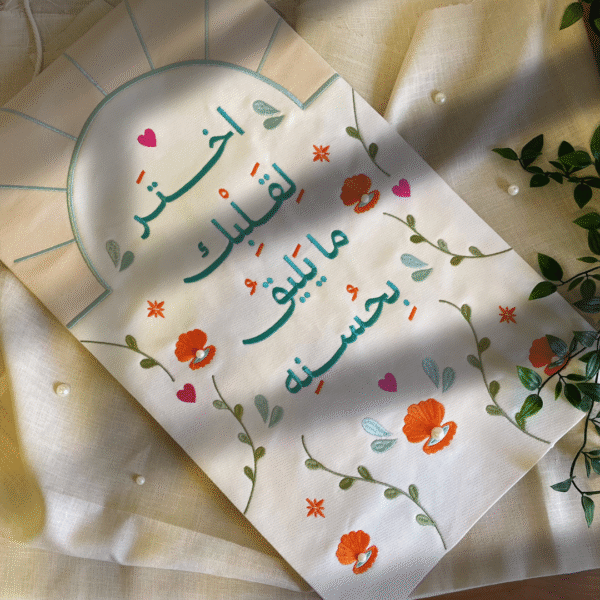 اختَر
لِقَلْبِكَ
ما يَليقُ
بِحُسنِه